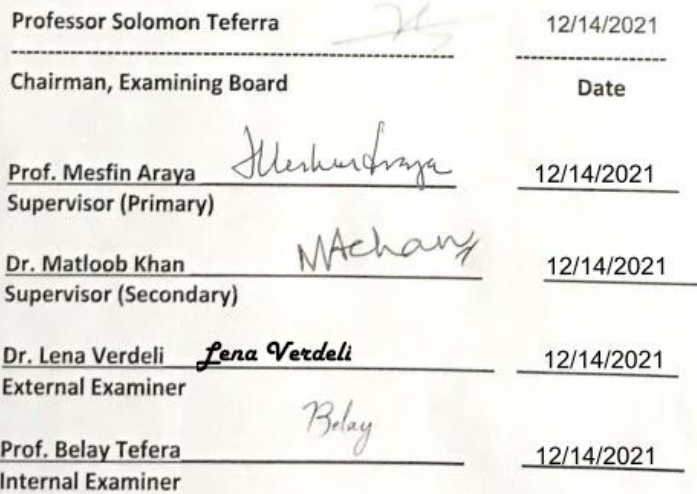 Professor Solomon Teferra 12/14/2021
Chairman, Examining Board Date
Prof. Mesfin Araya 12/14/2021
Supervisor (Primary)
Dr. Matloob Khan 12/14/2021
Supervisor (Secondary)
Dr. Lena Verdeli Lena Verdeli 12/14/2021
External Examiner
Prof. Belay Tefera Belay 12/14/2021
Internal Examiner